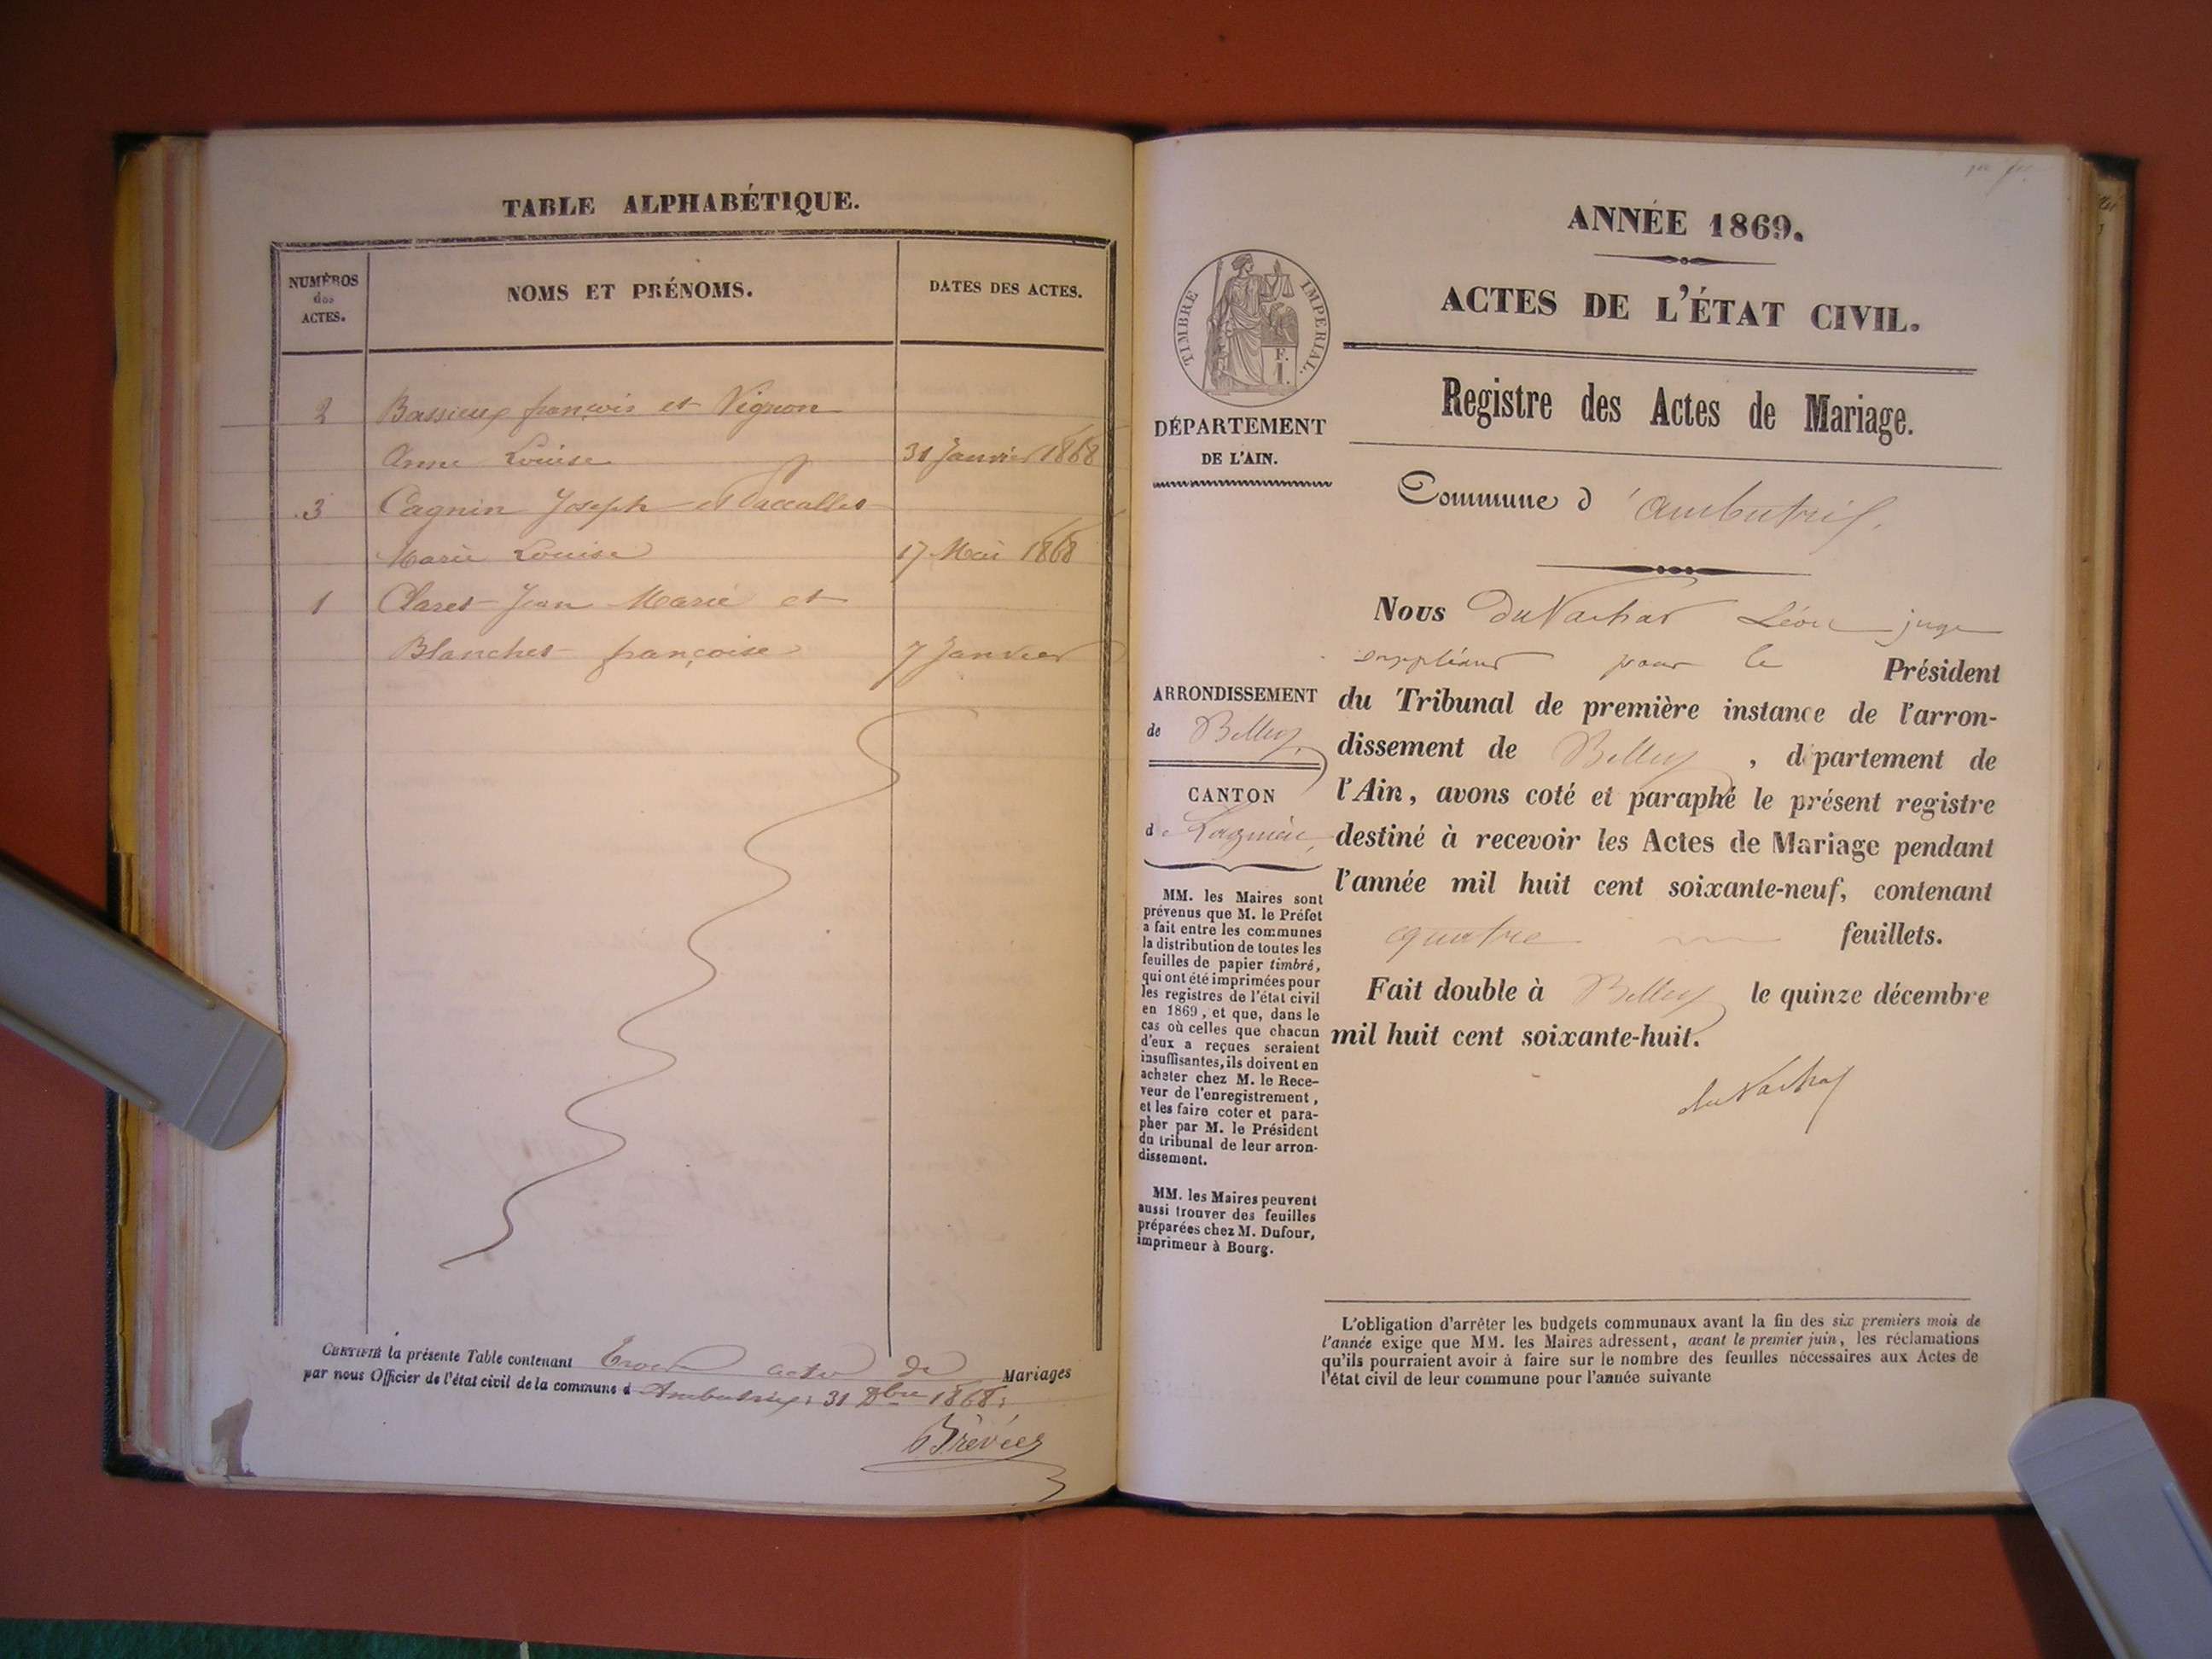 TABLE ALPHABÉTIQUE.
NUMÉROS
des
ACTES.
NOMS ET PRÉNOMS.
DATES DES ACTES.
2 Bassieux françois et Vignon
Anne Louise 31 Janvier 1868
3 Cagnin Joseph et Vaccalles
Marie Louise 17 Mai 1868
1 Claret Jean Marie et
Blanchet françoise 7 Janvier
CERTIFIÉ la présente Table contenant trois actes de Mariages
par nous Officier de l'état civil de la commune d Ambutrix; 31 Xbre 1868;
ANNÉE 1869.
ACTES DE L'ÉTAT CIVIL.
TIMBRE IMPERIAL.
F.
I.
Registre des Actes de Mariage.
DÉPARTEMENT
DE L'AIN.
Commune d'ambutrix.
ARRONDISSEMENT
de Belley,
CANTON
de Lagnieu,
MM. les Maires sont
prévenus que M. le Préfet
a fait entre les communes
la distribution de toutes les
feuilles de papier timbré,
qui ont été imprimées pour
les registres de l'état civil
en 1869, et que, dans le
cas où celles que chacun
d'eux a reçues seraient
insuffisantes, ils doivent en
acheter chez M. le Rece-
veur de l'enregistrement,
et les faire coter et para-
pher par M. le Président
du tribunal de leur arron-
dissement.
MM. les Maires peuvent
aussi trouver des feuilles
préparées chez M. Dufour,
imprimeur à Bourg.
Nous DuVachat Léon juge
suppléant pour le Président
du Tribunal de première instance de l'arron-
dissement de Belley, département de
l'Ain, avons coté et paraphé le présent registre
destiné à recevoir les Actes de Mariage pendant
l'année mil huit cent soixante-neuf, contenant
quatre feuillets.
Fait double à Belley le quinze décembre
mil huit cent soixante-huit.
duVachat
L'obligation d'arrêter les budgets communaux avant la fin des six premiers mois de
l'année exige que MM. les Maires adressent, avant le premier juin, les réclamations
qu'ils pourraient avoir à faire sur le nombre des feuilles nécessaires aux Actes de
l'état civil de leur commune pour l'année suivante